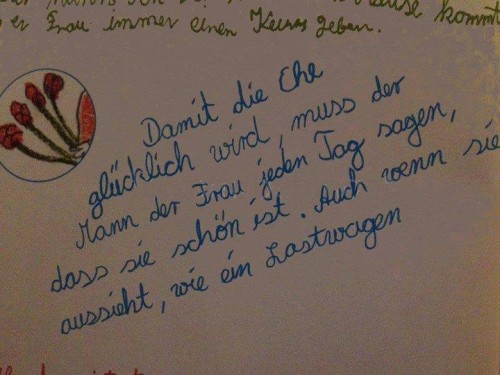 nach Hause kommt
er Frau immer einen Kuss geben.
Damit die Ehe
glücklich wird, muss der
Mann der Frau jeden Tag sagen,
dass sie schön ist. Auch wenn sie
aussieht, wie ein Lastwagen